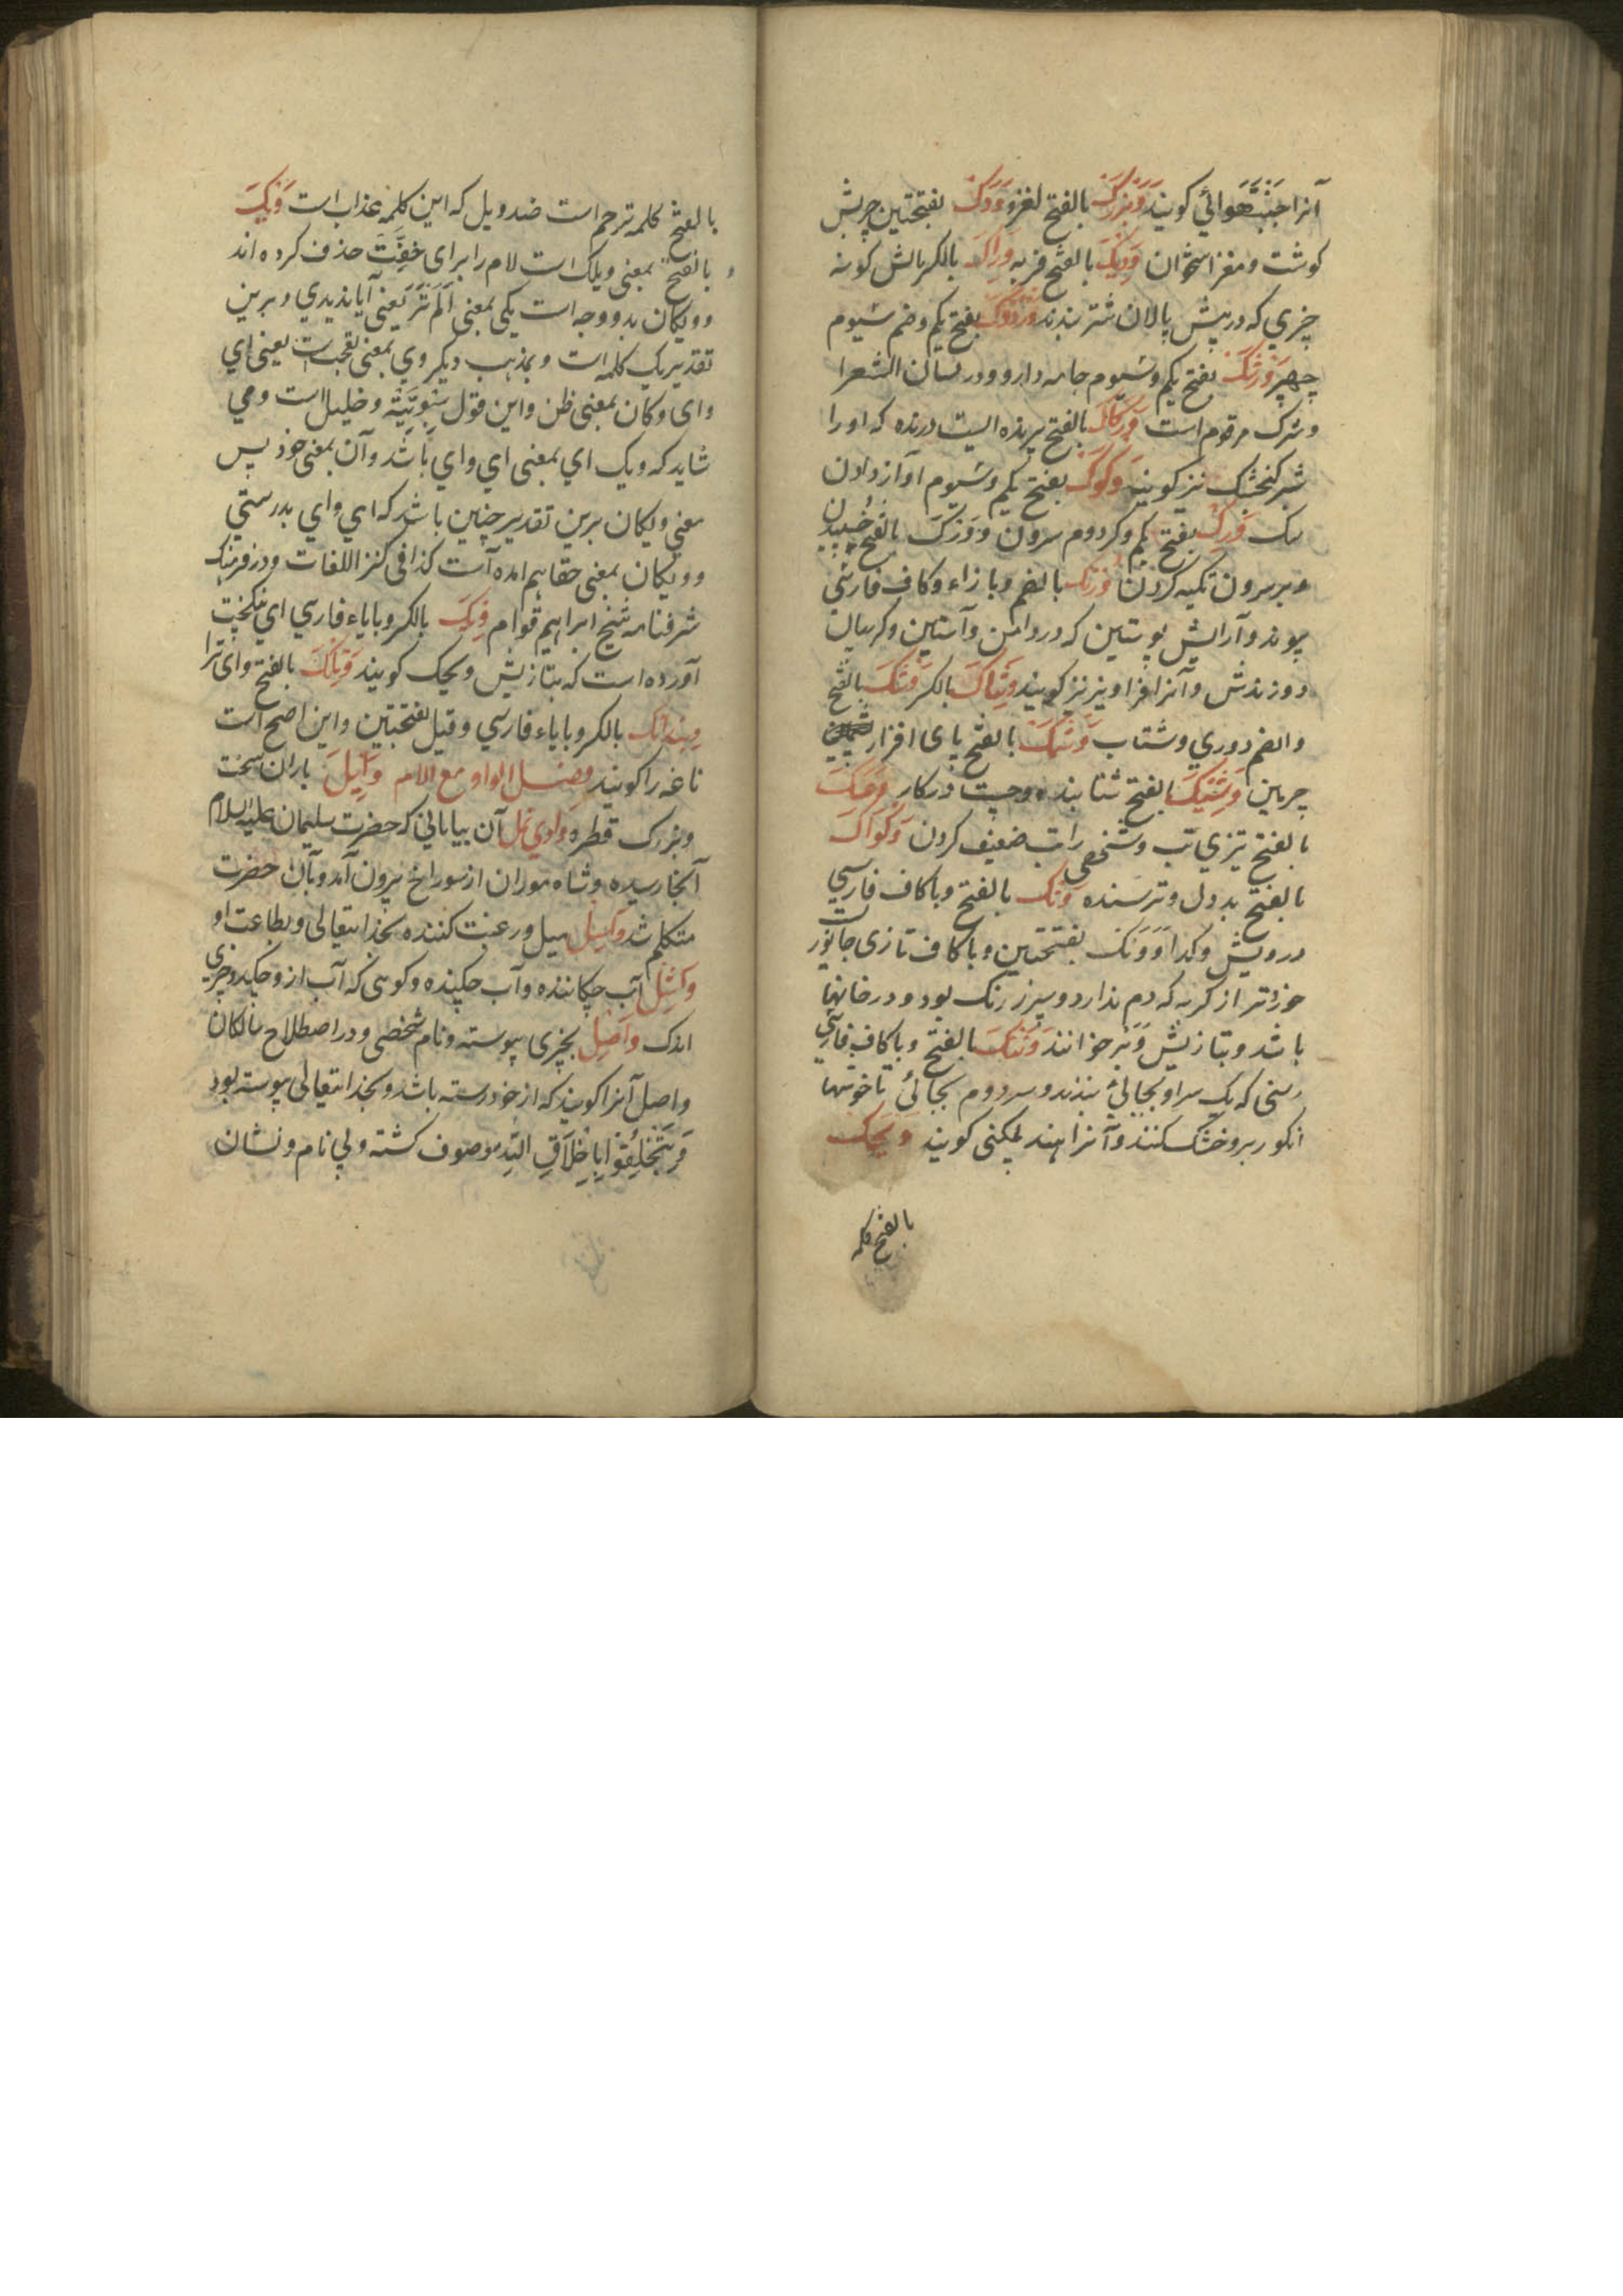 آنرا جَنْبَتْهَوائي کویند وَبْزَرَکْ بالفتح لغز وَوَدَکْ بفتحتین چربش
کوشت و مغز استخوان وَدِیکَ بالفتح فربه وِراکَ بالکسر بالش کونه
چیزي که در پیش پالان شتر بندند وَرْدُوکْ بفتح یکم وضم سیوم
چهپر وَرَشَکْ بفتح یکم وسیوم جامه دارو ودر لسان الشعرا
وسرک مرقوم است وَرْکاکْ بالفتح پرنده ایست درنده که اورا
شیر کنجشک نیز کویند وَکُوکْ بفتح یکم وسیوم آواز دادن
سک وَرِکْ بفتح یکم وکر دوم سرون وَوَرَکَ بالفتح خسپیدن
وبر سرون تکیه کردن وژنک بالضم وبا زاء وکاف فارسي
پیوند وآرایش پوستین که در دامن وآستین وکریبان
دوزندش وآنرا فراویز نیز کویند وَشاکَ بالکسر وَشَکَ بالفتح
والضم دوري وشتاب وَشمَکْ بالفتح پای افزار
چرمین وَشِیکَ بالفتح شتابنده وچست در کار وَعَکَ
بالفتح تیزي تب وشخصي را تب ضعیف کردن وَکْواکْ
بالفتح بد دل وترسنده ونک بالفتح وبا کاف فارسي
درویش وکدا وَوَنَک بفتحتین وبا کاف تازی جانور یست
خردتر از کربه که دم ندارد وسبز رنک بود ودر خانها
باشد وبتازیش وَبْر خوانند وَننکَ بالفتح وبا کاف فارسي
رسنی که یک سر او بجائی بندند وسر دوم بجائی تا خوشها
انکور برو خشک کنند وآنرا هند بلکني کویند وَیْحَکْ
بالفتح کلمه
بالفتح کلمه ترحم است ضد ویل که این کلمه عذاب است وَیْکَ
بالفتح بمعنی ویلک است لام را برای خِفَّتْ حذف کرده اند
وویکان بدو وجه است یکی بمعنی اَلَمْ تَرَ یَعنی آیا ندیدي وبرین
تقدیر یک کلمه است وبمذهب دیکر وي بمعنی تعجب است یعنی اي
وای وکان بمعنی ظن واین قول سِیْبَوَیْه وخلیل است ومي
شاید که ویک اي بمعنی اي واي باشد وآن بمعنی خود پس
معنی ویکان برین تقدیر چنین باشد که اي واي بدرستي
وویکان بمعنی حقا هم امده است کذا فی کنز اللغات ودر فرهنک
شرفنامه شیخ ابراهیم قوام وِیک بالکسر وبا یاء فارسي اي نیکبخت
آورده است که بتازیش ویحک کویند وَیْلَکَ بالفتح وای ترا
ویندانک بالکسر وبا یاء فارسي وقیل بفتحتین واین اصح است
ناغه را کویند فصل الواو مع اللام وابِلْ باران سخت
وبزرک قطره وادي نمل آن بیابانی که حضرت سلیمان علیه السلام
آنجا رسیده وشاه موران از سوراخ بیرون آمد وبآن حضرت
متکلم شد واسِل میل ورغبت کننده بخدایتعالی وبطاعت او
واشِل آب چکاننده وآب چکیده وکوهی که آب ازو چکد وچیزي
اندک واصِل بچیزی پیوسته ونام شخصی ودر اصطلاح سالکان
واصل آنرا کویند که از خود رسته باشد وبخدایتعالی پیوسته بود
وَتَخَلَّقُوْا بِاَخْلَاقِ اللهِ موصوف کشته وبي نام ونشان